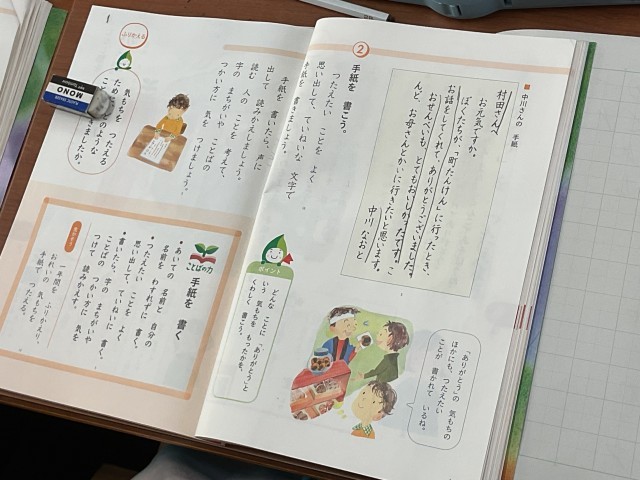 中川さんの 手紙
村田さんへ
お元気ですか。
ぼくたちが、「町たんけん」に行ったとき、
お話をしてくれて、ありがとうございました。
おせんべいも、とてもおいしかったです。こ
んど、お母さんとかいに行きたいと思います。
中川 なおと
「ありがとう」の 気もちの
ほかにも、つたえたい
ことが 書かれて いるね。
2
手紙を 書こう。
つたえたい ことを よく
思い出して、ていねいな 文字で
手紙を 書きましょう。
ポイント
どんな ことに 「ありがとう」と
いう 気もちを もったかを、
くわしく 書こう。
手紙を 書いたら、声に
出して 読みかえしましょう。
読む 人の ことを 考えて、
字の まちがいや、ことばの
つかい方に 気を つけましょう。
ふりかえる
気もちを つたえる
ため
ことばの力
手紙を 書く
・あいての 名前と 自分の
名前を わすれずに 書く。
・つたえたい ことを よく
思い出して、ていねいに 書く。
・書いたら、字の まちがいや
ことばの つかい方に 気を
つけて 読みかえす。
一年間を ふりかえり、
おれいの 気もちを
手紙で つたえる。
MONO